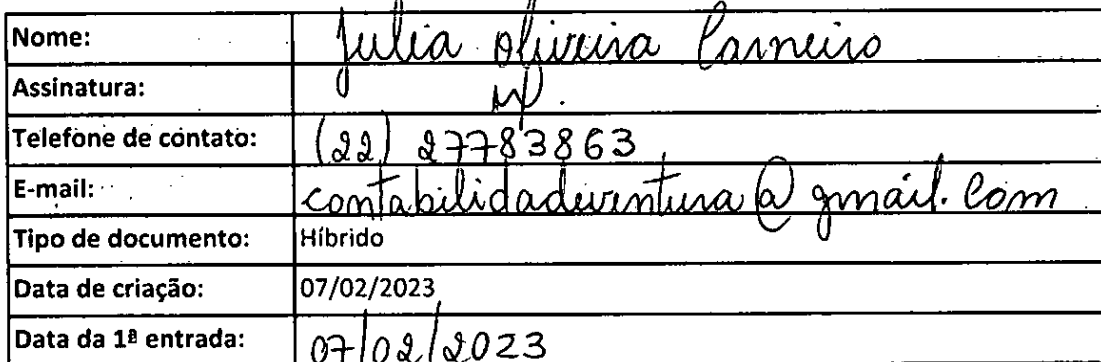 Nome: Julia Oliveira Carneiro
Assinatura:
Telefone de contato: (22) 27783863
E-mail: contabilidadeventura@gmail.com
Tipo de documento: Híbrido
Data de criação: 07/02/2023
Data da 1ª entrada: 07/02/2023